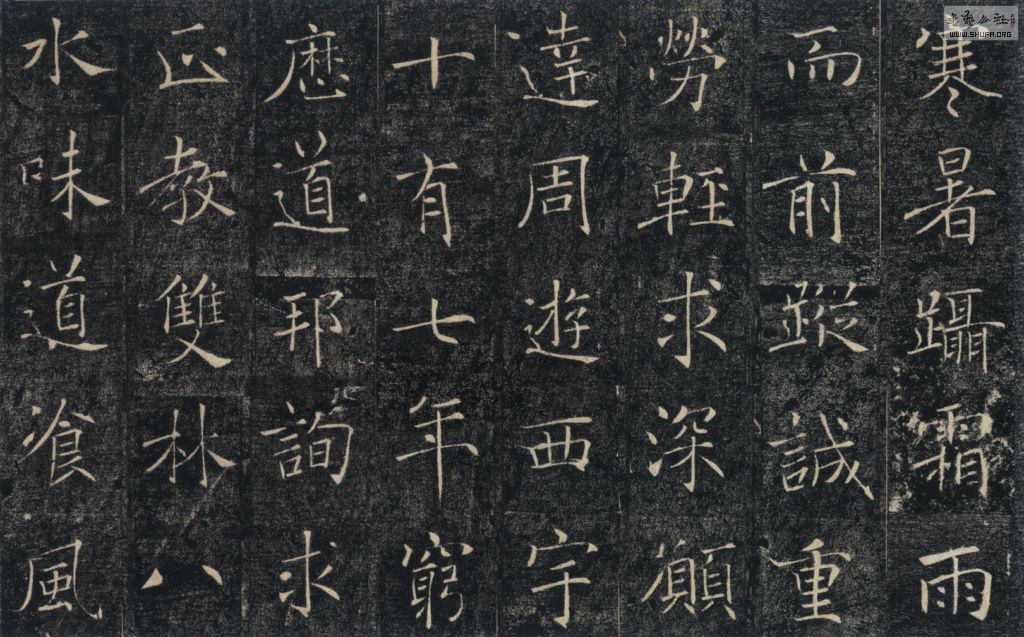 寒暑躡霜雨
而前蹤誠重
勞輕求深願
達周遊西宇
十有七年窮
歷道邦詢求
正教雙林八
水味道飡風
WWW.SHUFA.ORG